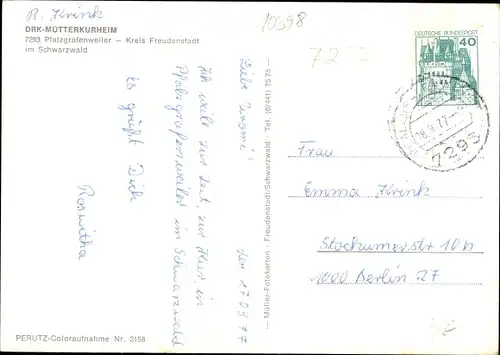 R. Krink
DRK-MÜTTERKURHEIM
7293 Pfalzgrafenweiler – Kreis Freudenstadt
im Schwarzwald
10398
DEUTSCHE BUNDESPOST
40
18.9.77
7293
den 17.09.77
Liebe
Ich weile zur Zeit, zur Kur in
Pfalzgrafenweiler im Schwarzwald
Es grüßt Dich
Roswitha
Müller-Fotokarten - Freudenstadt/Schwarzwald - Tel. (07441) 7575
Frau
Emma Krink
Stockumerstr 10
1000 Berlin 27
PERUTZ-Coloraufnahme Nr. 3158